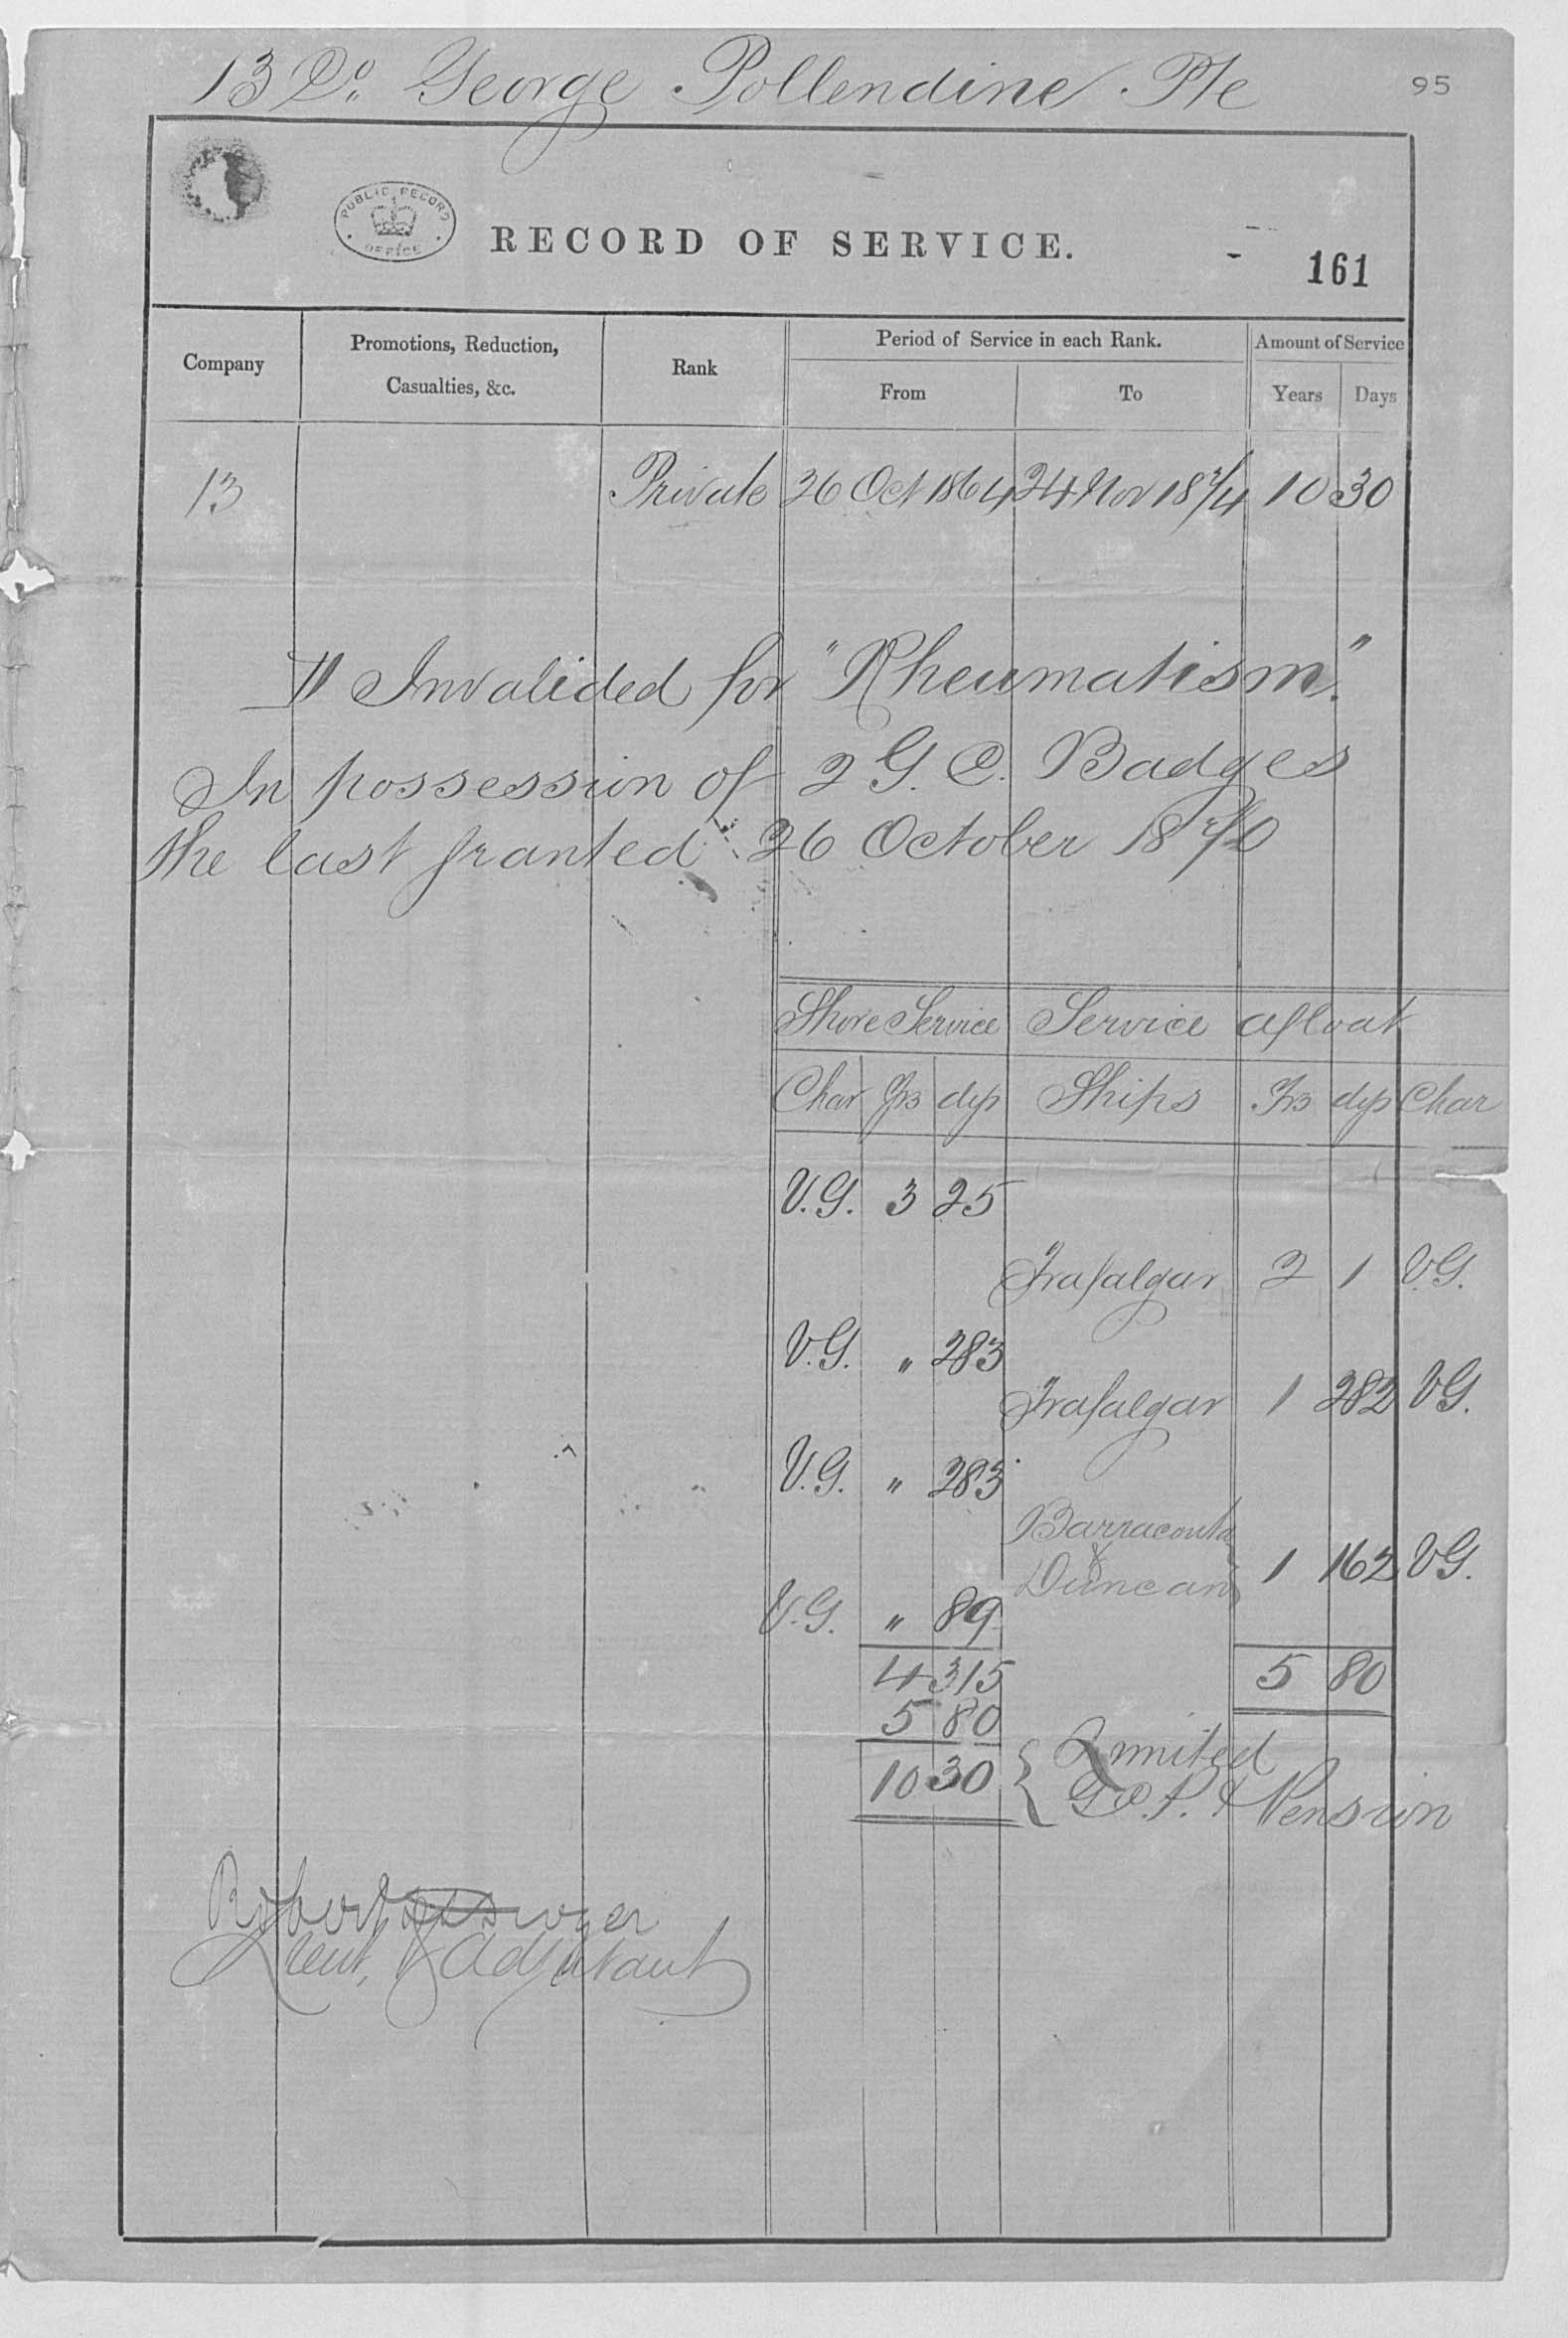 13 Do. George Pollendine Pte
95
PUBLIC RECORD OFFICE
RECORD OF SERVICE.
161
Company
Promotions, Reduction, Casualties, &c.
Rank
Period of Service in each Rank.
From
To
Amount of Service
Years
Days
13 Private 26 Oct 1864 24 Nov 1874 10 30
Invalided for "Rheumatism."
In possession of 2 G. C. Badges
the last granted 26 October 1870
Shore Service Service afloat
Char Yrs dys Ships Yrs dys Char
V.G. 3 25
Trafalgar 2 1 V.G.
V.G. " 283
Trafalgar 1 282 V.G.
V.G. " 283
Barracouta
& Duncan 1 162 V.G.
V.G. " 89
4 315 5 80
5 80
10 30 { Limited
G.C.P. & Pension
Robert
Lieut, & Adjutant